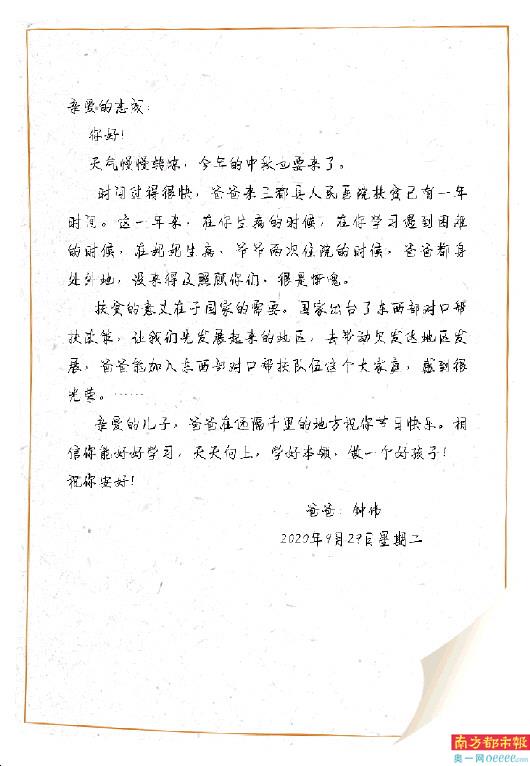 亲爱的志成:
你好!
天气慢慢转凉,今年的中秋也要来了。
时间过得很快,爸爸来三都县人民医院扶贫已有一年
时间。这一年来,在你生病的时候,在你学习遇到困难
的时候,在妈妈生病、爷爷两次住院的时候,爸爸都身
处外地,没来得及照顾你们,很是惭愧。
扶贫的意义在于国家的需要。国家出台了东西部对口帮
扶政策,让我们先发展起来的地区,去带动欠发达地区发
展,爸爸能加入东西部对口帮扶队伍这个大家庭,感到很
光荣。……
亲爱的儿子,爸爸在远隔千里的地方祝你节日快乐。相
信你能好好学习,天天向上,学好本领,做一个好孩子!
祝你安好!
爸爸:钟伟
2020年9月29日星期二
南方都市报
奥一网oeeee.com